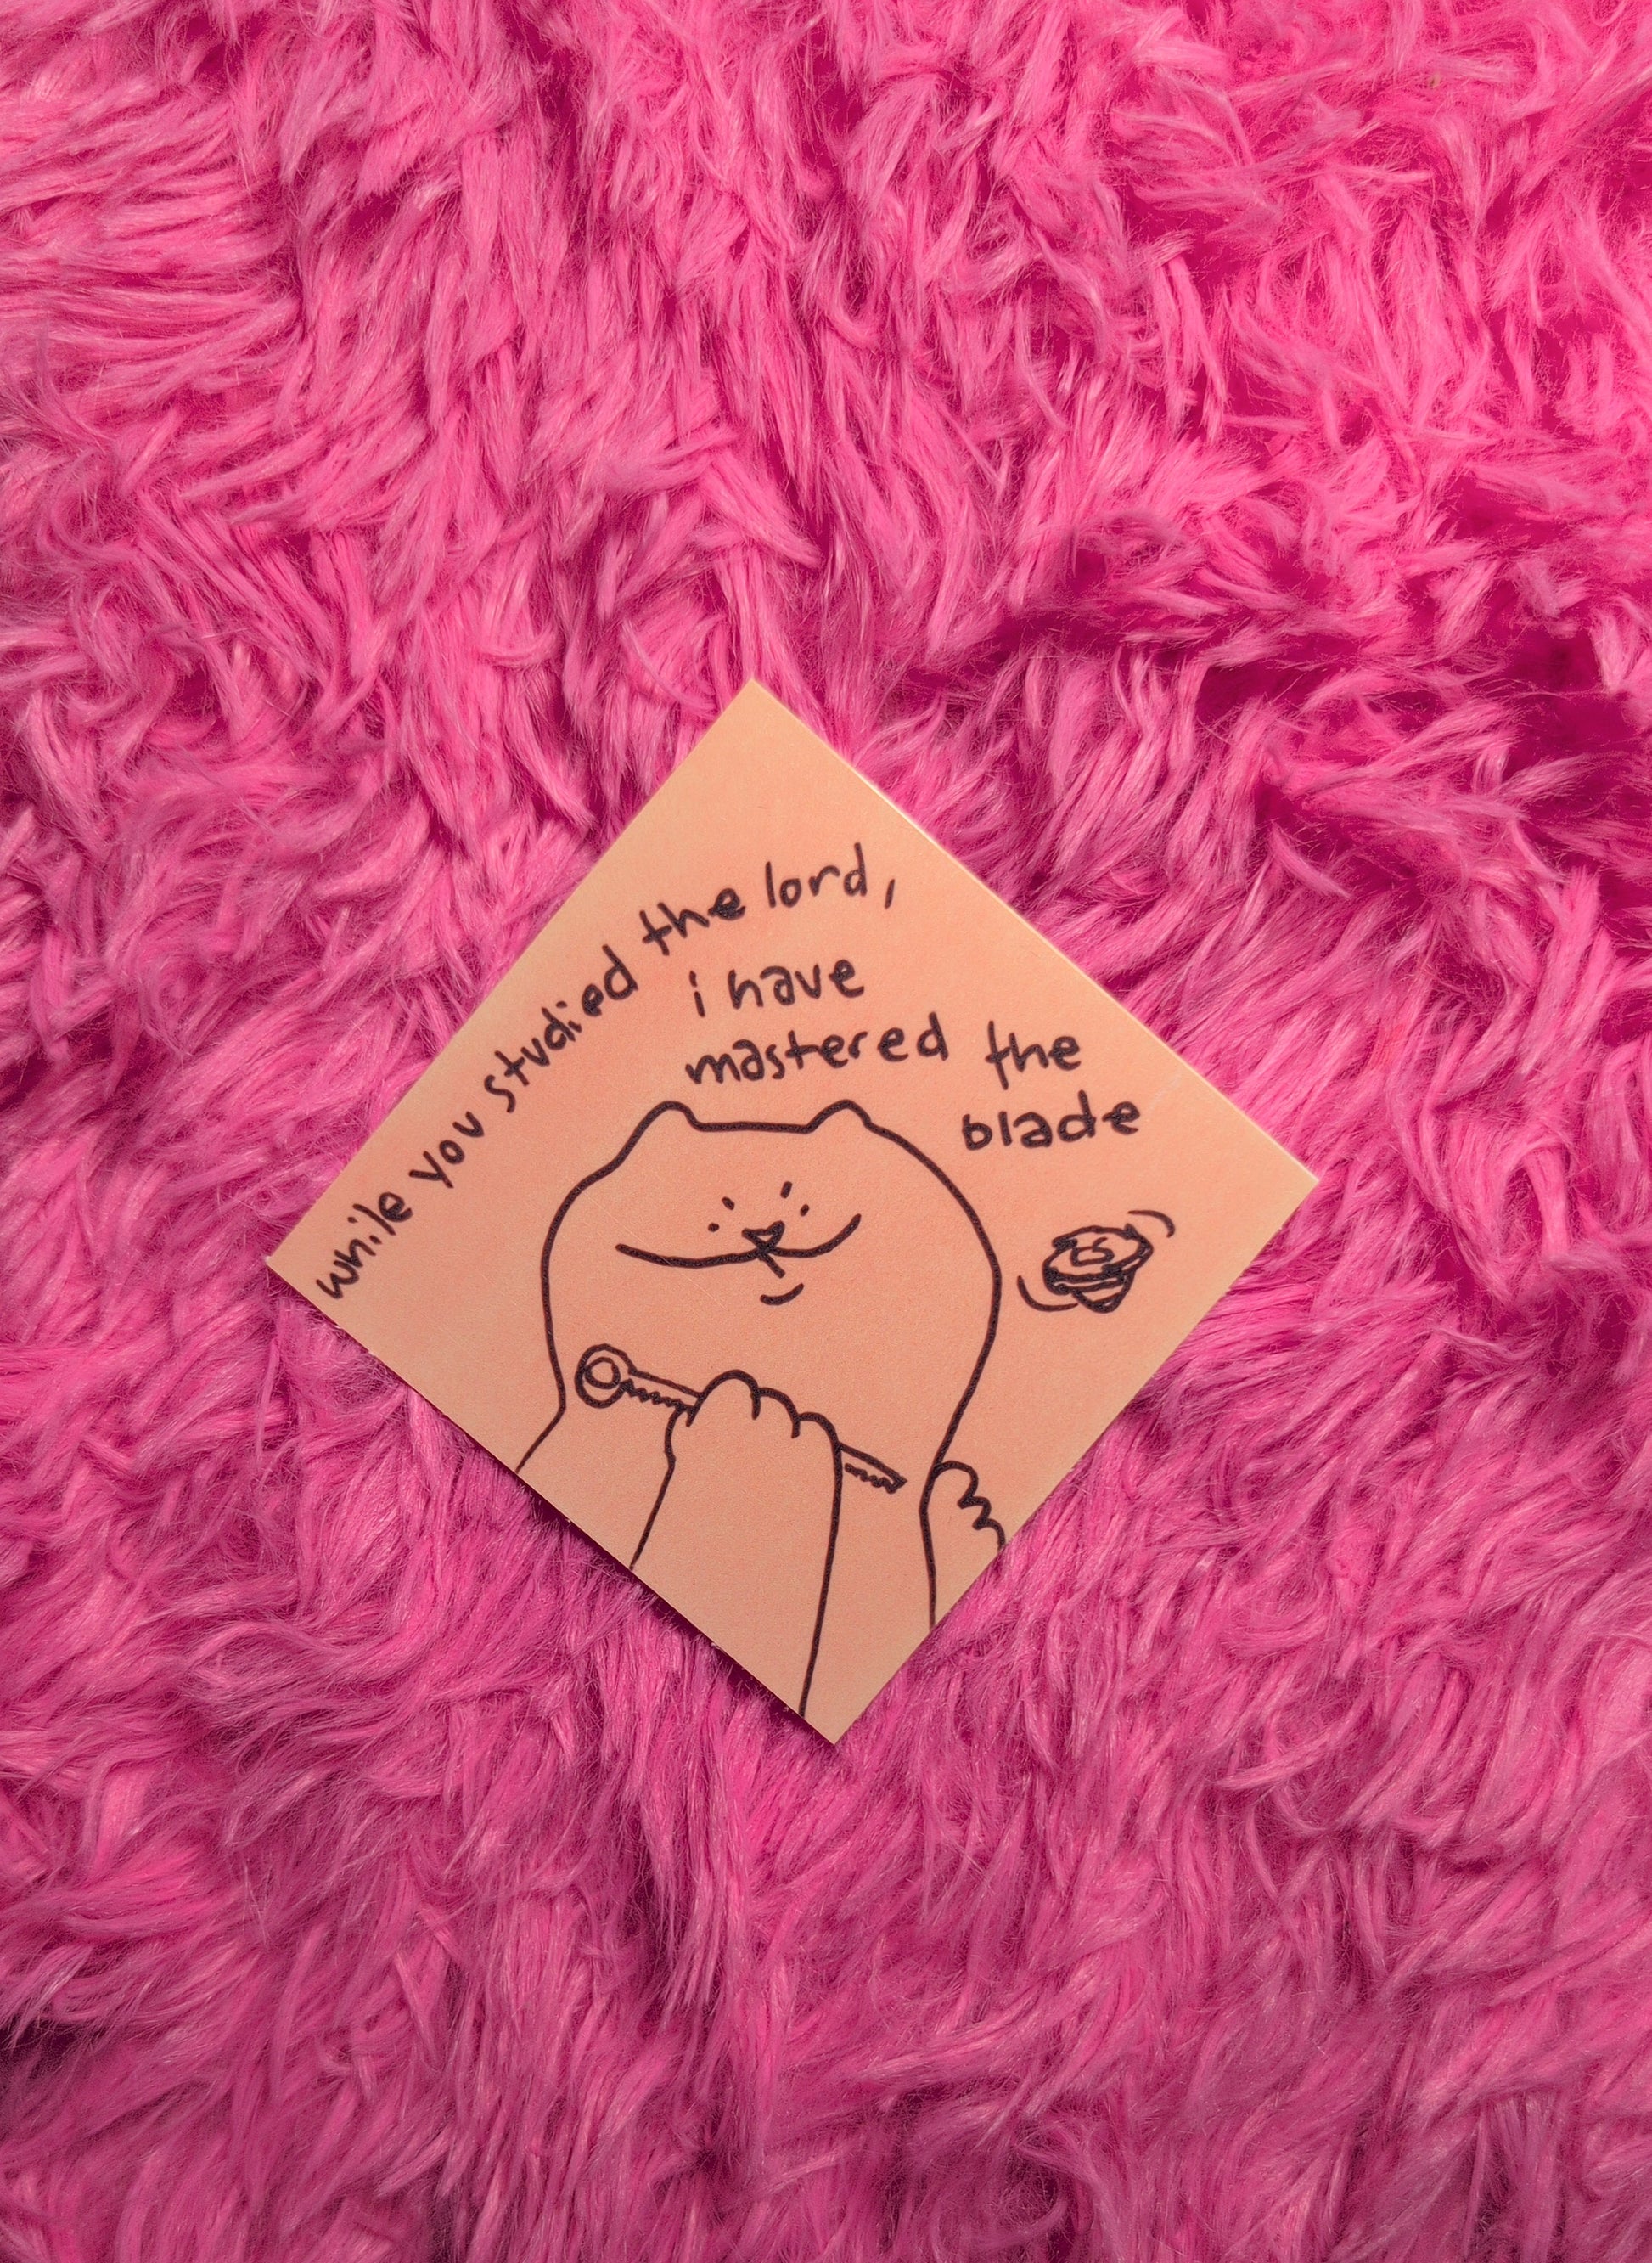 while you studied the lord,
i have
mastered the
blade